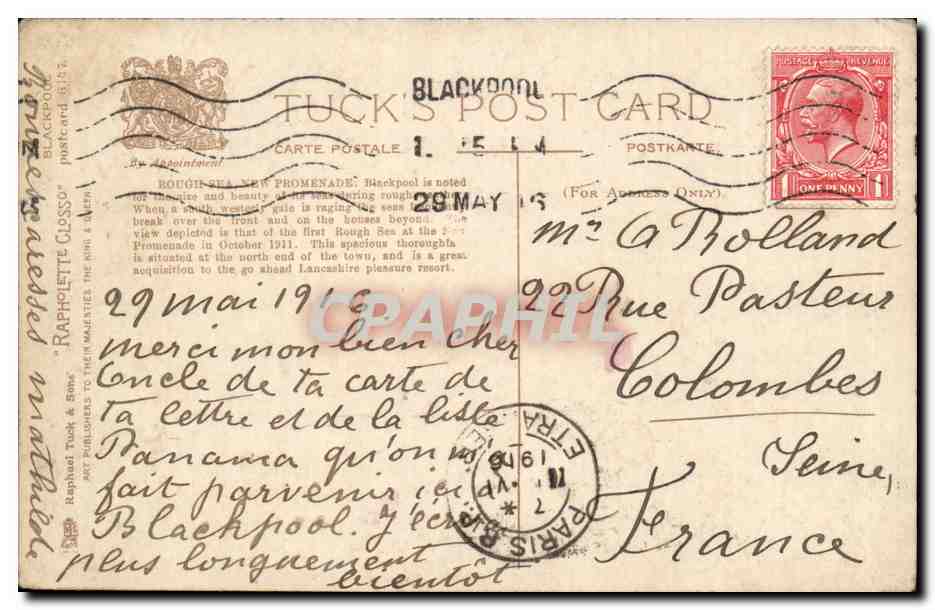 BLACKPOOL
TUCK'S POST CARD
CARTE POSTALE
POSTKARTE.
By Appointment
(FOR ADDRESS ONLY).
29 MAY 16
POSTAGE REVENUE
1 ONE PENNY 1
ROUGH SEA, NEW PROMENADE: Blackpool is noted
for the size and beauty of its seas during rough
When a south westerly gale is raging the seas
break over the front and on the houses beyond. The
view depicted is that of the first Rough Sea at the
Promenade in October 1911. This spacious thoroughfa
is situated at the north end of the town, and is a great
acquisition to the go ahead Lancashire pleasure resort.
29 mai 1916
merci mon bien cher
Oncle de ta carte de
ta lettre et de la liste
Panama qu'on m'
fait parvenir ici
Blackpool. J'écr
plus longuement
bientôt
caresses mathilde
Mr G Rolland
22 Rue Pasteur
Colombes
Seine,
France
BLACKPOOL
postcard 6147.
"RAPHOLETTE GLOSSO"
Raphael Tuck & Sons'
ART PUBLISHERS TO THEIR MAJESTIES THE KING & QUEEN.
PARIS
ETRA
1916
CPAPHIL